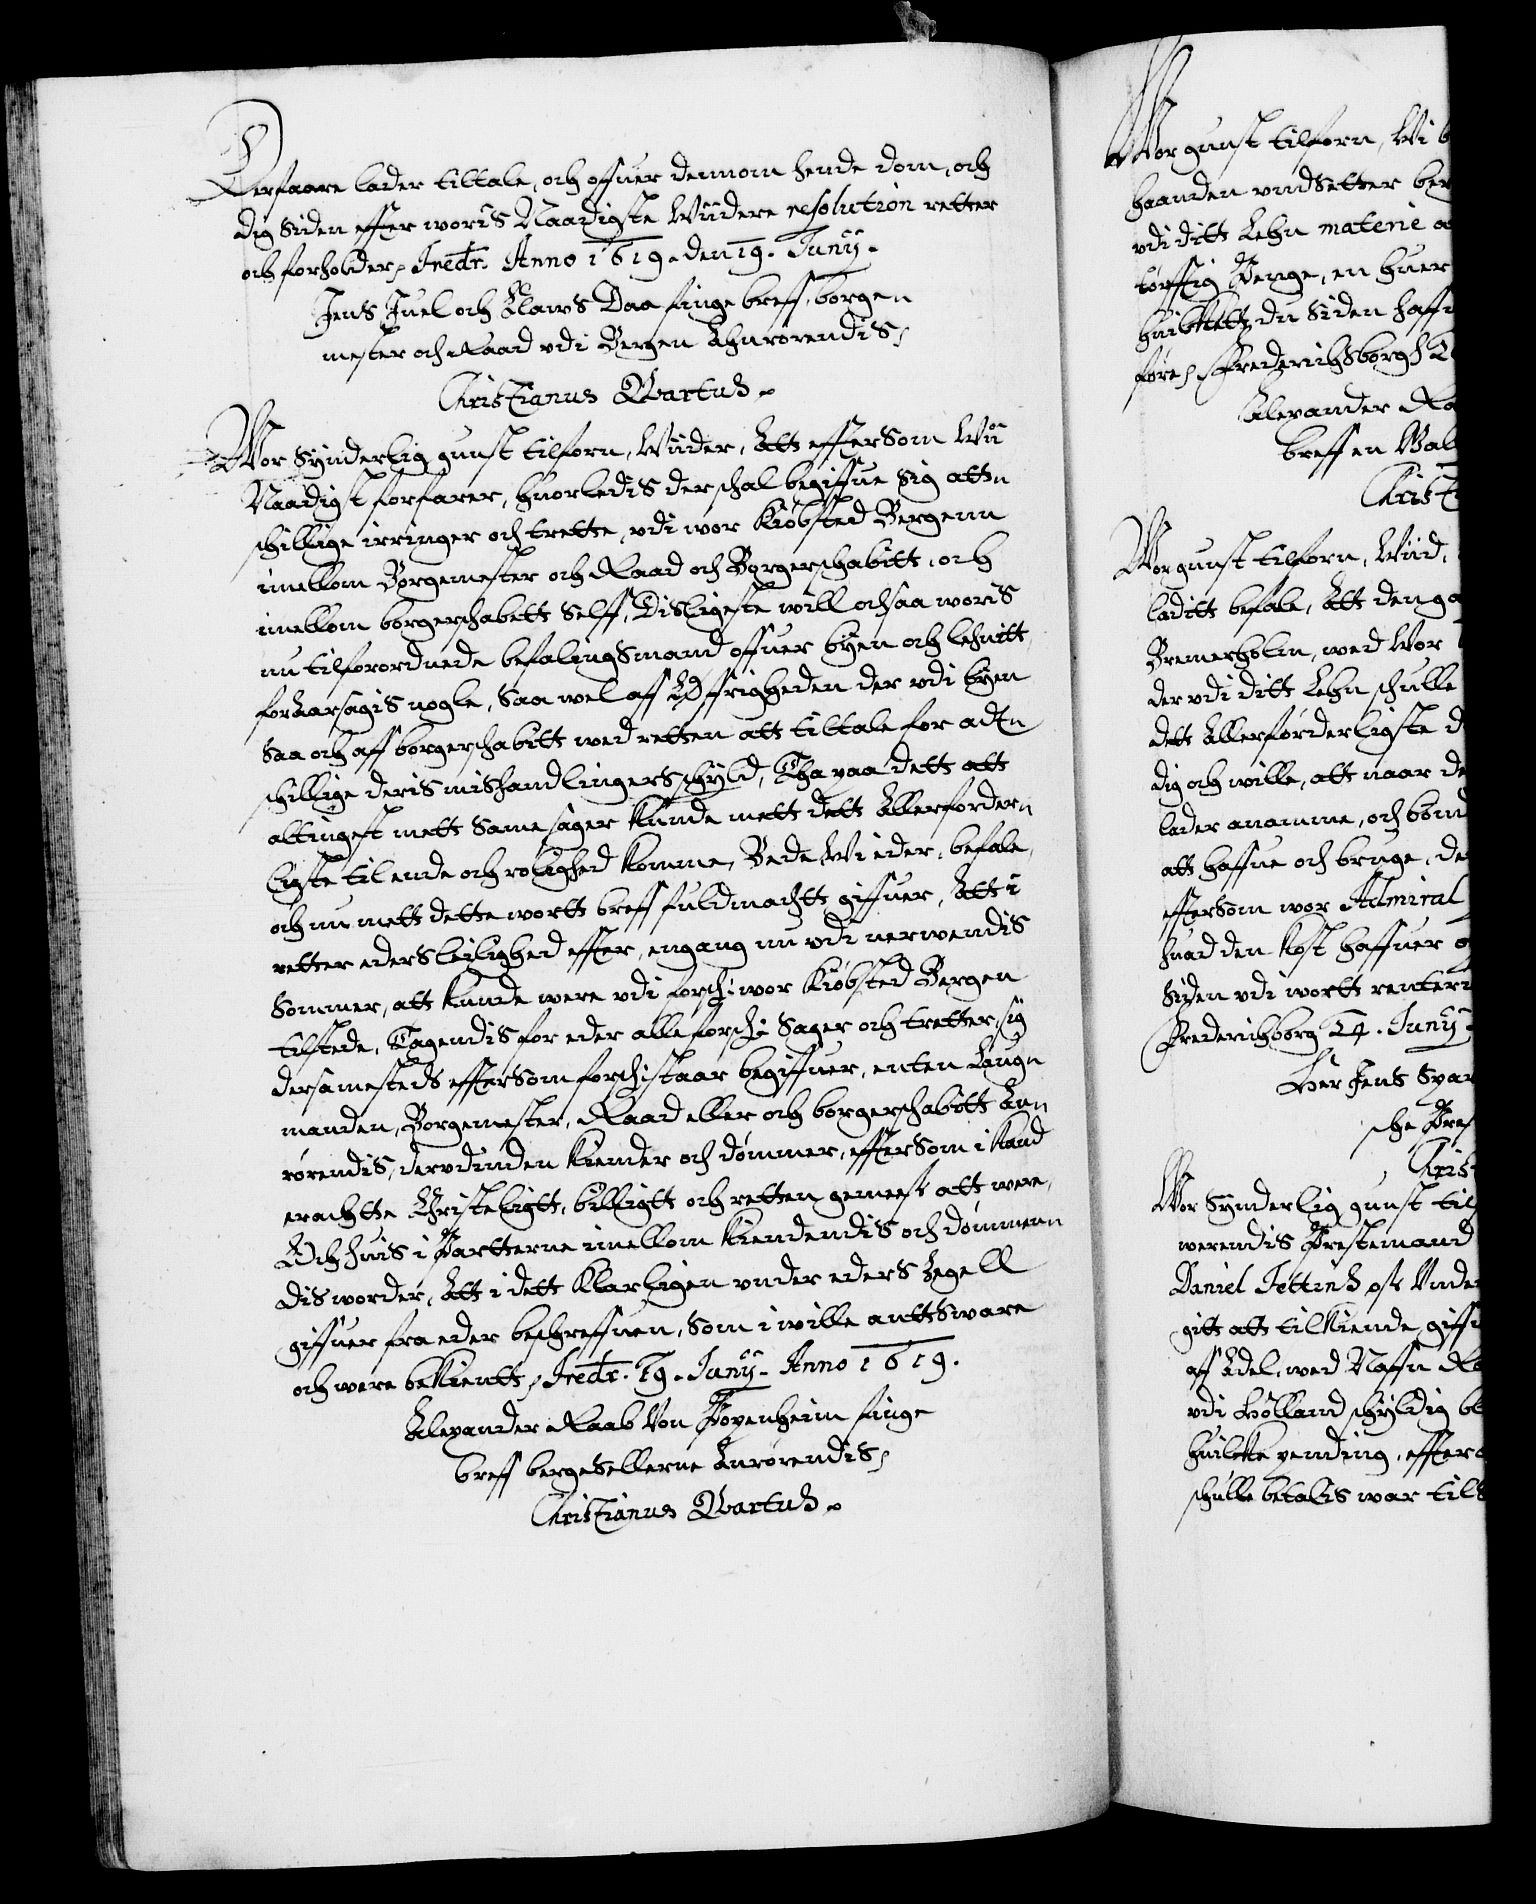 Derfaare lader tiltale, och offuer dennom hende dom, och
dig siden effter woris Naadigste Wiidere resolution retter
och forholder, Fredr. Anno 1619. den 19. Juny.
Jens Juel och Claus Daa finge breff, borgen
mester och Raad vdi Bergen Ahnrørendis,
Christianus Qvartus.
Wor Synderlig gunst tilforn, Wiider, Att effter som Wii
Naadigst forfarer, huorledis der schal begiffue sig attn
schillige irringer och trette, vdi wor Kiøbsted Bergenn
imellom Borgemester och Raad och Borgerschabitt, och
imellom borgerschabett Selff, Disligeste will ochsaa woris
nu tilforordnede befalingsmand offuer byen och lehnitt
for Aarsagis nogle, Saa wel aff Øffrigheden der vdi byen
Saa och aff borgerschabitt wed retten att tiltale for adtn
schillige deris mishandlingers schyld, Tha paa dett att
altingest mett Same sager Kunde mett dett Allerfordern
ligste til ende och rolighed Komme, Bede Wi eder, befale,
och nu mett dette wortt breff fuldmachtt giffuer, Att i
retter eders leilighed effter, engang nu vdi nerwendis
Sommer, att Kunde were vdi forschi: wor Kiøbsted Bergen
tilstede, Tagendis for eder alle forschi: Sager och tretter, sig
dersamesteds effter som forschi: staar begiffuer, enten Laugn
manden, Borgemester, Raad eller och borgerschabitt Ann
rørendis, dervdinden Kiender och dømmer, effter som i Kand
erachtte Christeligtt, billigtt och retten gemeest att were,
Och huis i Partterne imellom Kiendendis och dømmenn
dis worder, Att i dett Klarligen vnder eders Zegell
giffuer fra eder beschreffuen, Som i wille anttsware
och were bekientt, Fredr. 19. Juny. Anno 1619.
Alexander Raab Von Papenheim finge
breff bergesellerne Anrørendis,
Christianus Qvartus.
Wor gunst tilforn, Wi
haanden vndsetter
vdi ditt Lehn materie
tørffig Penge, en huer
huilckett du siden
føre, Frederichsborgh
Alexander
breff en
Wor gunst tilforn, Wiid,
laditt befale, Att
Bremerholm, wed Wor
der vdi ditt Lehn schulle
dett Allerførderligste
dig och wille, att naar
lader anamme, och
att haffue och bruge,
effter som wor Admiral
huad den Kost haffuer
siden vdi wortt
Frederichborg 24. Juny
Her Jens
sche
Wor Synderlig gunst
werendis Prestemand
Daniel
gitt att tilkiende
aff Adel, wed Naffn
vdi Holland schyldig
huilcke pending, effter
schulle betalis war